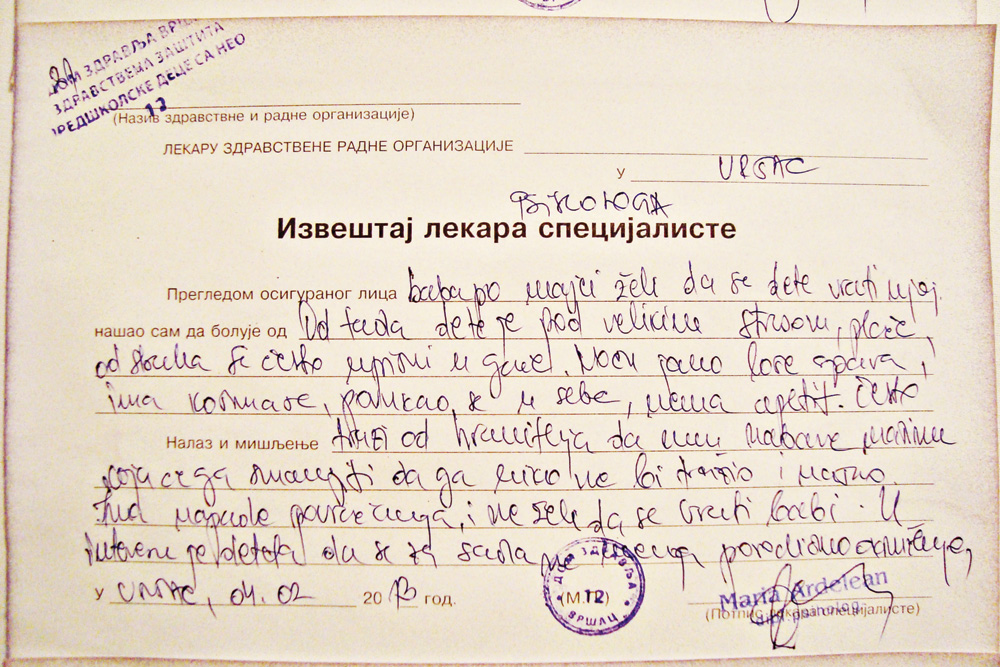 ДОМ ЗДРАВЉА
ЗДРАВСТВЕНА ЗАШТИТА
ПРЕДШКОЛСКЕ ДЕЦЕ СА НЕО
12
(Назив здравствне и радне организације)
ЛЕКАРУ ЗДРАВСТВЕНЕ РАДНЕ ОРГАНИЗАЦИЈЕ
У VRŠAC
Извештај лекара специјалисте
Прегледом осигураног лица baba po majci žele da se dete vrati njoj.
нашао сам да болује од Od tada dete je pod velikim stresom, plače,
od straha se često umiri u gaće. Noću jako loše spava,
ima košmare, povukao se u sebe, nema apetit. Često
Налаз и мишљење traži od hranitelja da mu nabave mašinu
koja će ga smanjiti da ga niko ne bi tražio i
i ne žele da se vrati babi. U
interesu je deteta da se za sada ne
У VRŠAC, 04.02 2013 год.
ДОМ ЗДРАВЉА
(М.П.)
12
ВРШАЦ
Maria Ardelean
dipl. psiholog
(Потпис лекара специјалисте)